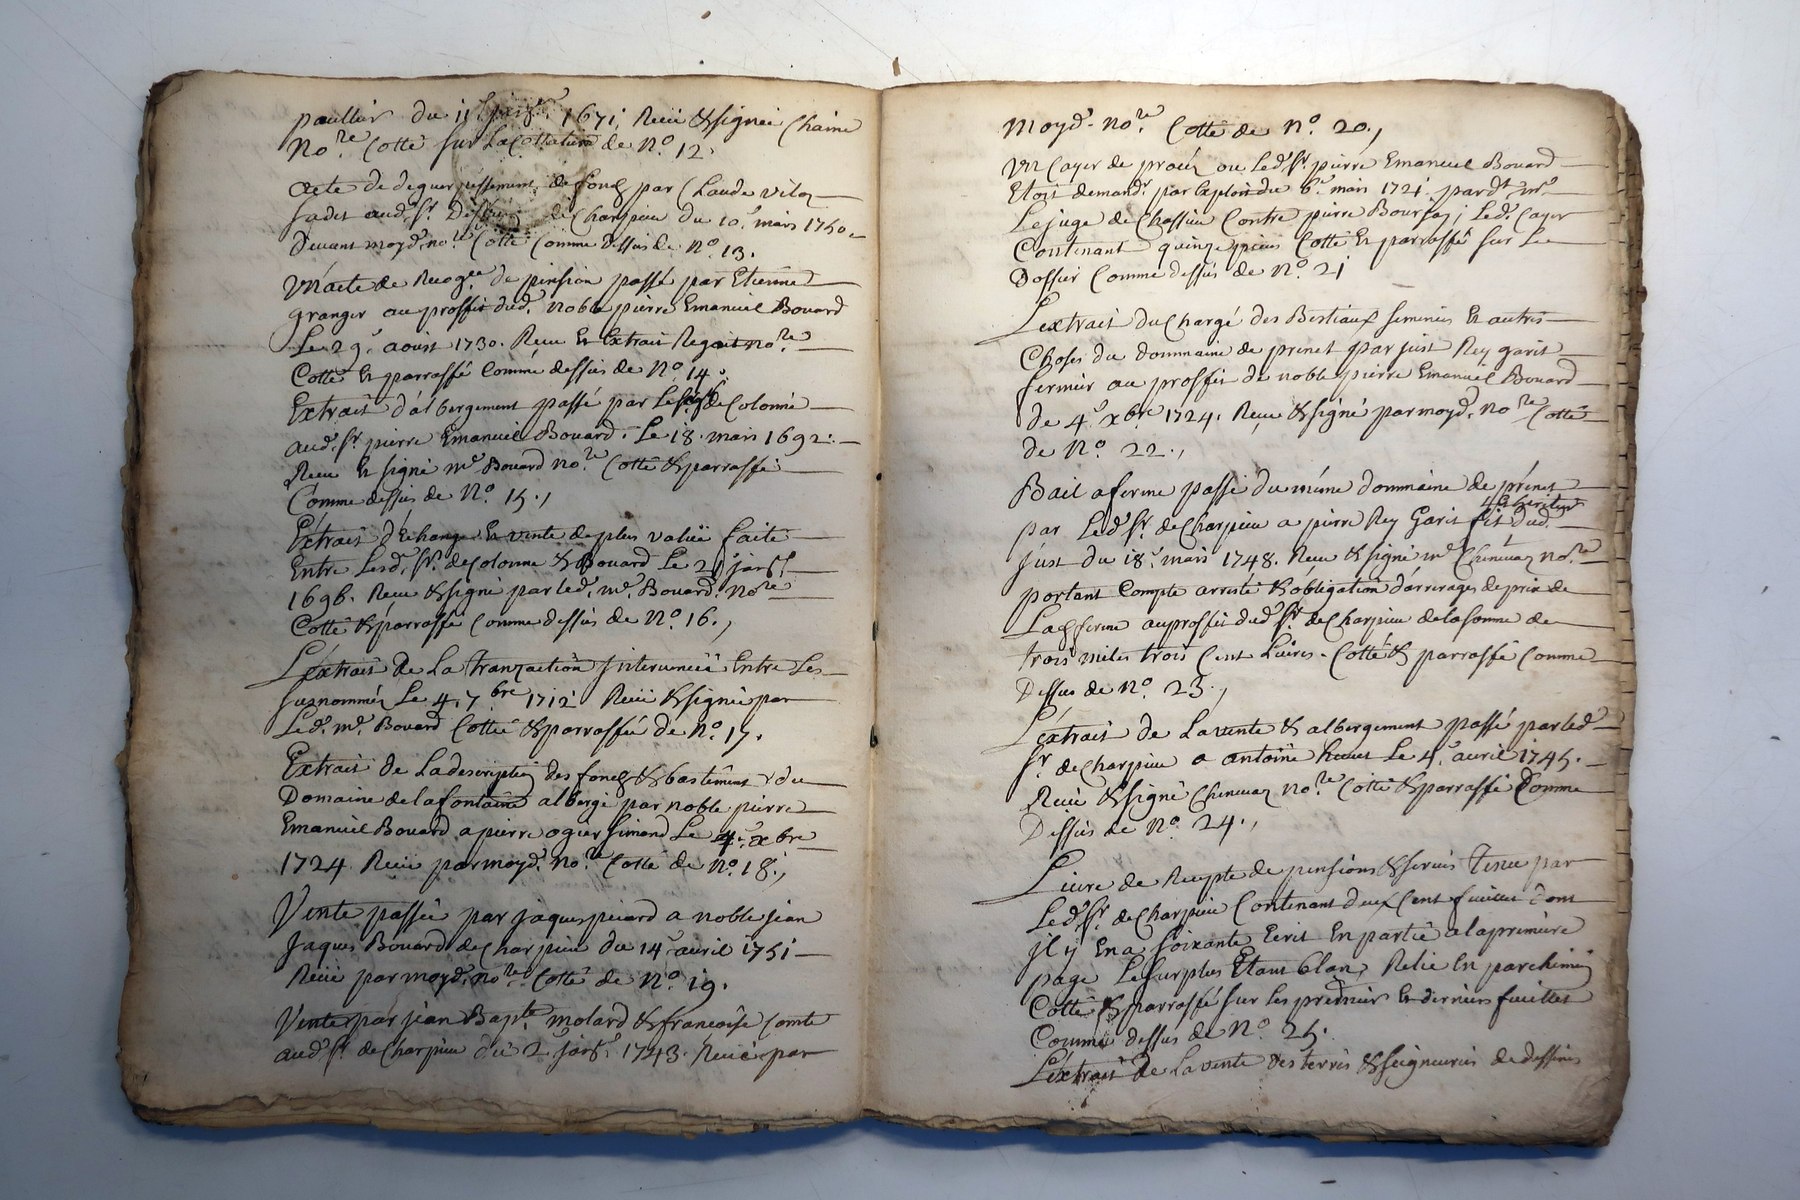 paultier du 11e janvr. 1671, Receu & signée Chaine
No.re Cotté sur La Cottature de No. 12.
Acte de deguerpissement de fondz par Claude
Sadit aud. Sr. de Charpieu du 10e. mars 1750
Devant moyd. no.re Cotté Comme dessus de No. 13.
Un acte de Recog.ce de pension passé par Etienne
granger au proffit dud. noble pierre Emanuel Bouard
Le 29e. aoust 1730. Receu Et Extrait no.re
Cotté Et parraffé Comme dessus de No. 14.
Extrait d'albergement passé par Le Sr. de Colonne
aud. Sr. pierre Emanuel Bouard. Le 18. mars 1692.
Receu Et signé me. Bouard no.re Cotté & parraffé
Comme dessus de No. 15.,
Extrait d'Echange Et vente de plus valüe faite
Entre Lesd. Srs. de Colonne & Bouard Le janvr.
1696. Receu & signé par led. me. Bouard. No.re
Cotté & parraffé Comme dessus de No. 16.,
L'extrait de La tranzaction Intervenüe Entre Les
susnommés Le 4. 7bre 1712 Receü & signée par
Led. me. Bouard Cottée & parraffée de No. 17.
Extrait de La description des fondz & bastiment du
Domaine de la fontaine albergé par noble pierre
Emanuel Bouard a pierre ogier Simond Le 4e. xbre
1724 Receü par moyd. no.re Cotté de No. 18.,
Vente passée par Jaques a noble jean
Jaques Bouard de Charpieu du 14e avril 1751
Receü par moyd. no.re Cotté de No. 19.
Vente par jean Bapte. molard & francoise Comte
aud. Sr. de Charpieu du 2e janvr. 1743. Receü par
moyd. no.re. Cotté de No. 20.,
Un Cayer de procez ou Led. Sr. pierre Emanuel Bouard
Etoit demandr. par Exploit du 6e. mars 1721. pardt. mr.
Le juge de Chassieu Contre pierre ; Led. Cayer
Contenant quinze pieces Cotté Et parraffé sur Le
Dossier Comme dessus de No. 21
L'extrait du Chargé des Bestiaux semences Et autres
Choses du dommaine de prenet par just Rey garit
fermier au proffit de noble pierre Emanuel Bouard
de 4e. xbre 1724. Receu & signé par moyd. no.re Cotté
de No. 22.,
Bail a ferme passé du même dommaine de prénet
par Led. Sr. de Charpieu a pierre Rey Garit fils & heritier dud.
Just du 18e. mars 1748. Receu & signé me. no.re
portant Compte arresté & obligation d'arrerages de prix de
Lad. ferme au proffit dud. Sr. de Charpieu de la somme de
trois miles trois Cent Livres. Cotté & parraffé Comme
Dessus de No. 23.,
L'extrait de La vente & albergement passé par led.
Sr. de Charpieu a antoine Le 4e. avril 1745.
Receü & signé no.re Cotté & parraffé Comme
Dessus de No. 24.,
Livre de Recepte de pensions & servis Tenu par
Led. Sr. de Charpieu Contenant deux Cent feuillet dont
il y En a soixante Ecrit En partie a la premiere
page Le surplus Etant blanc, Relié En parchemin
Cotté & parraffé sur Les premier Et derniers feuillet
Comme dessus de No. 25.
L'extrait de La vente des terres & seigneuries de dessines